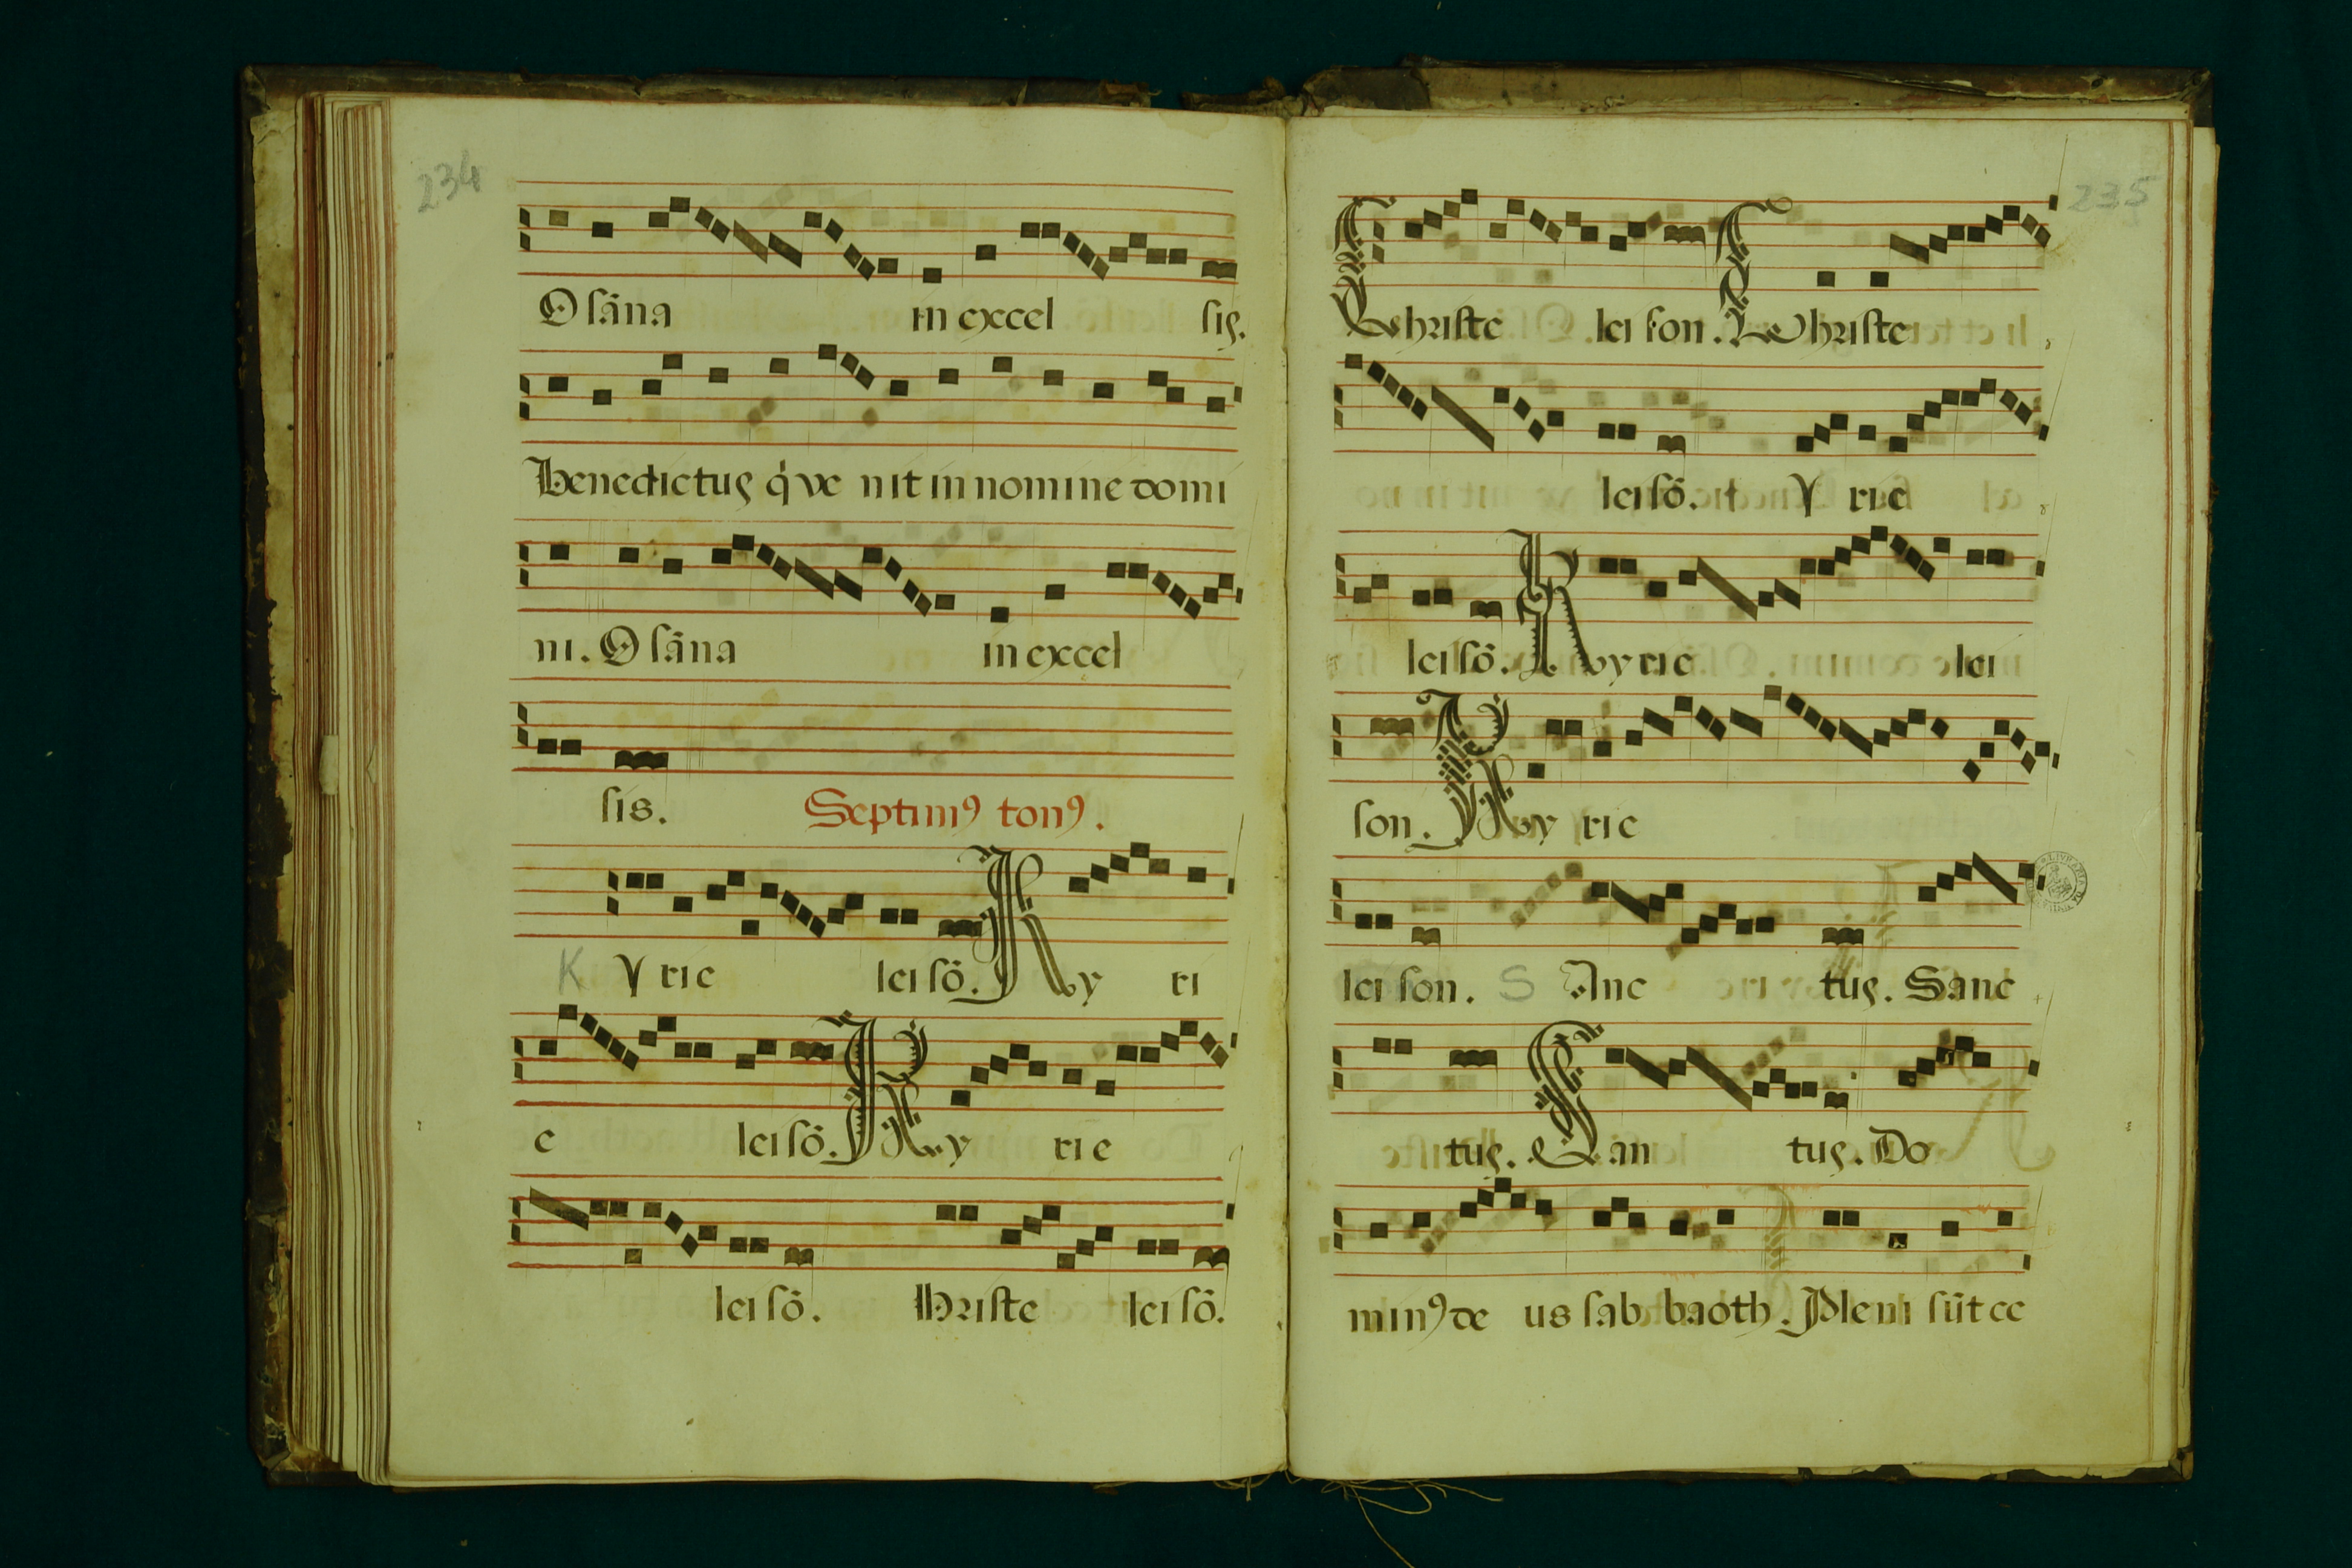 234
Osāna in excel sis.
Benedictus q̇ ve nit in nomine domi
ni. Osāna in excel
sis. Septimꝰ tonꝰ.
K Y rie lei sō. Ky ri
e lei sō. Ky rie
lei sō. Hriste lei sō.
235
Christe lei son. Christe
lei sō. Y rie
lei sō. Kyrie lei
son. Ky rie
lei son. S Anc tus. Sanc
tus. San tus. Do
minꝰ de us sab baoth. Pleni sūt ce